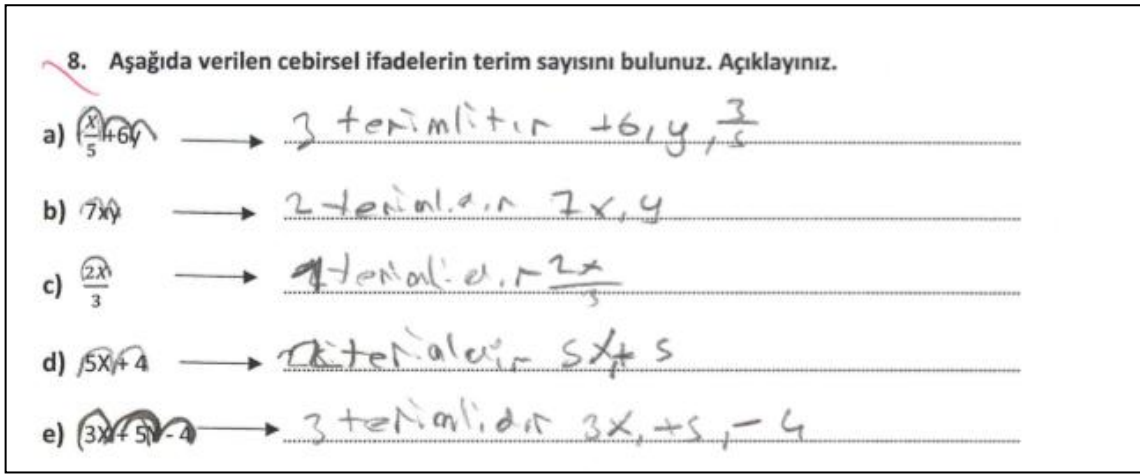 8. Aşağıda verilen cebirsel ifadelerin terim sayısını bulunuz. Açıklayınız.
a) x/5 +6y → 3 terimlitir +6, y, 3/5
b) 7xy → 2 terimlidir 7x, y
c) 2x/3 → terimlidir 2x/3
d) 5x + 4 → 5x, + 5
e) (3x + 5y - 4) → 3 terimlidir 3x, +5, - 4